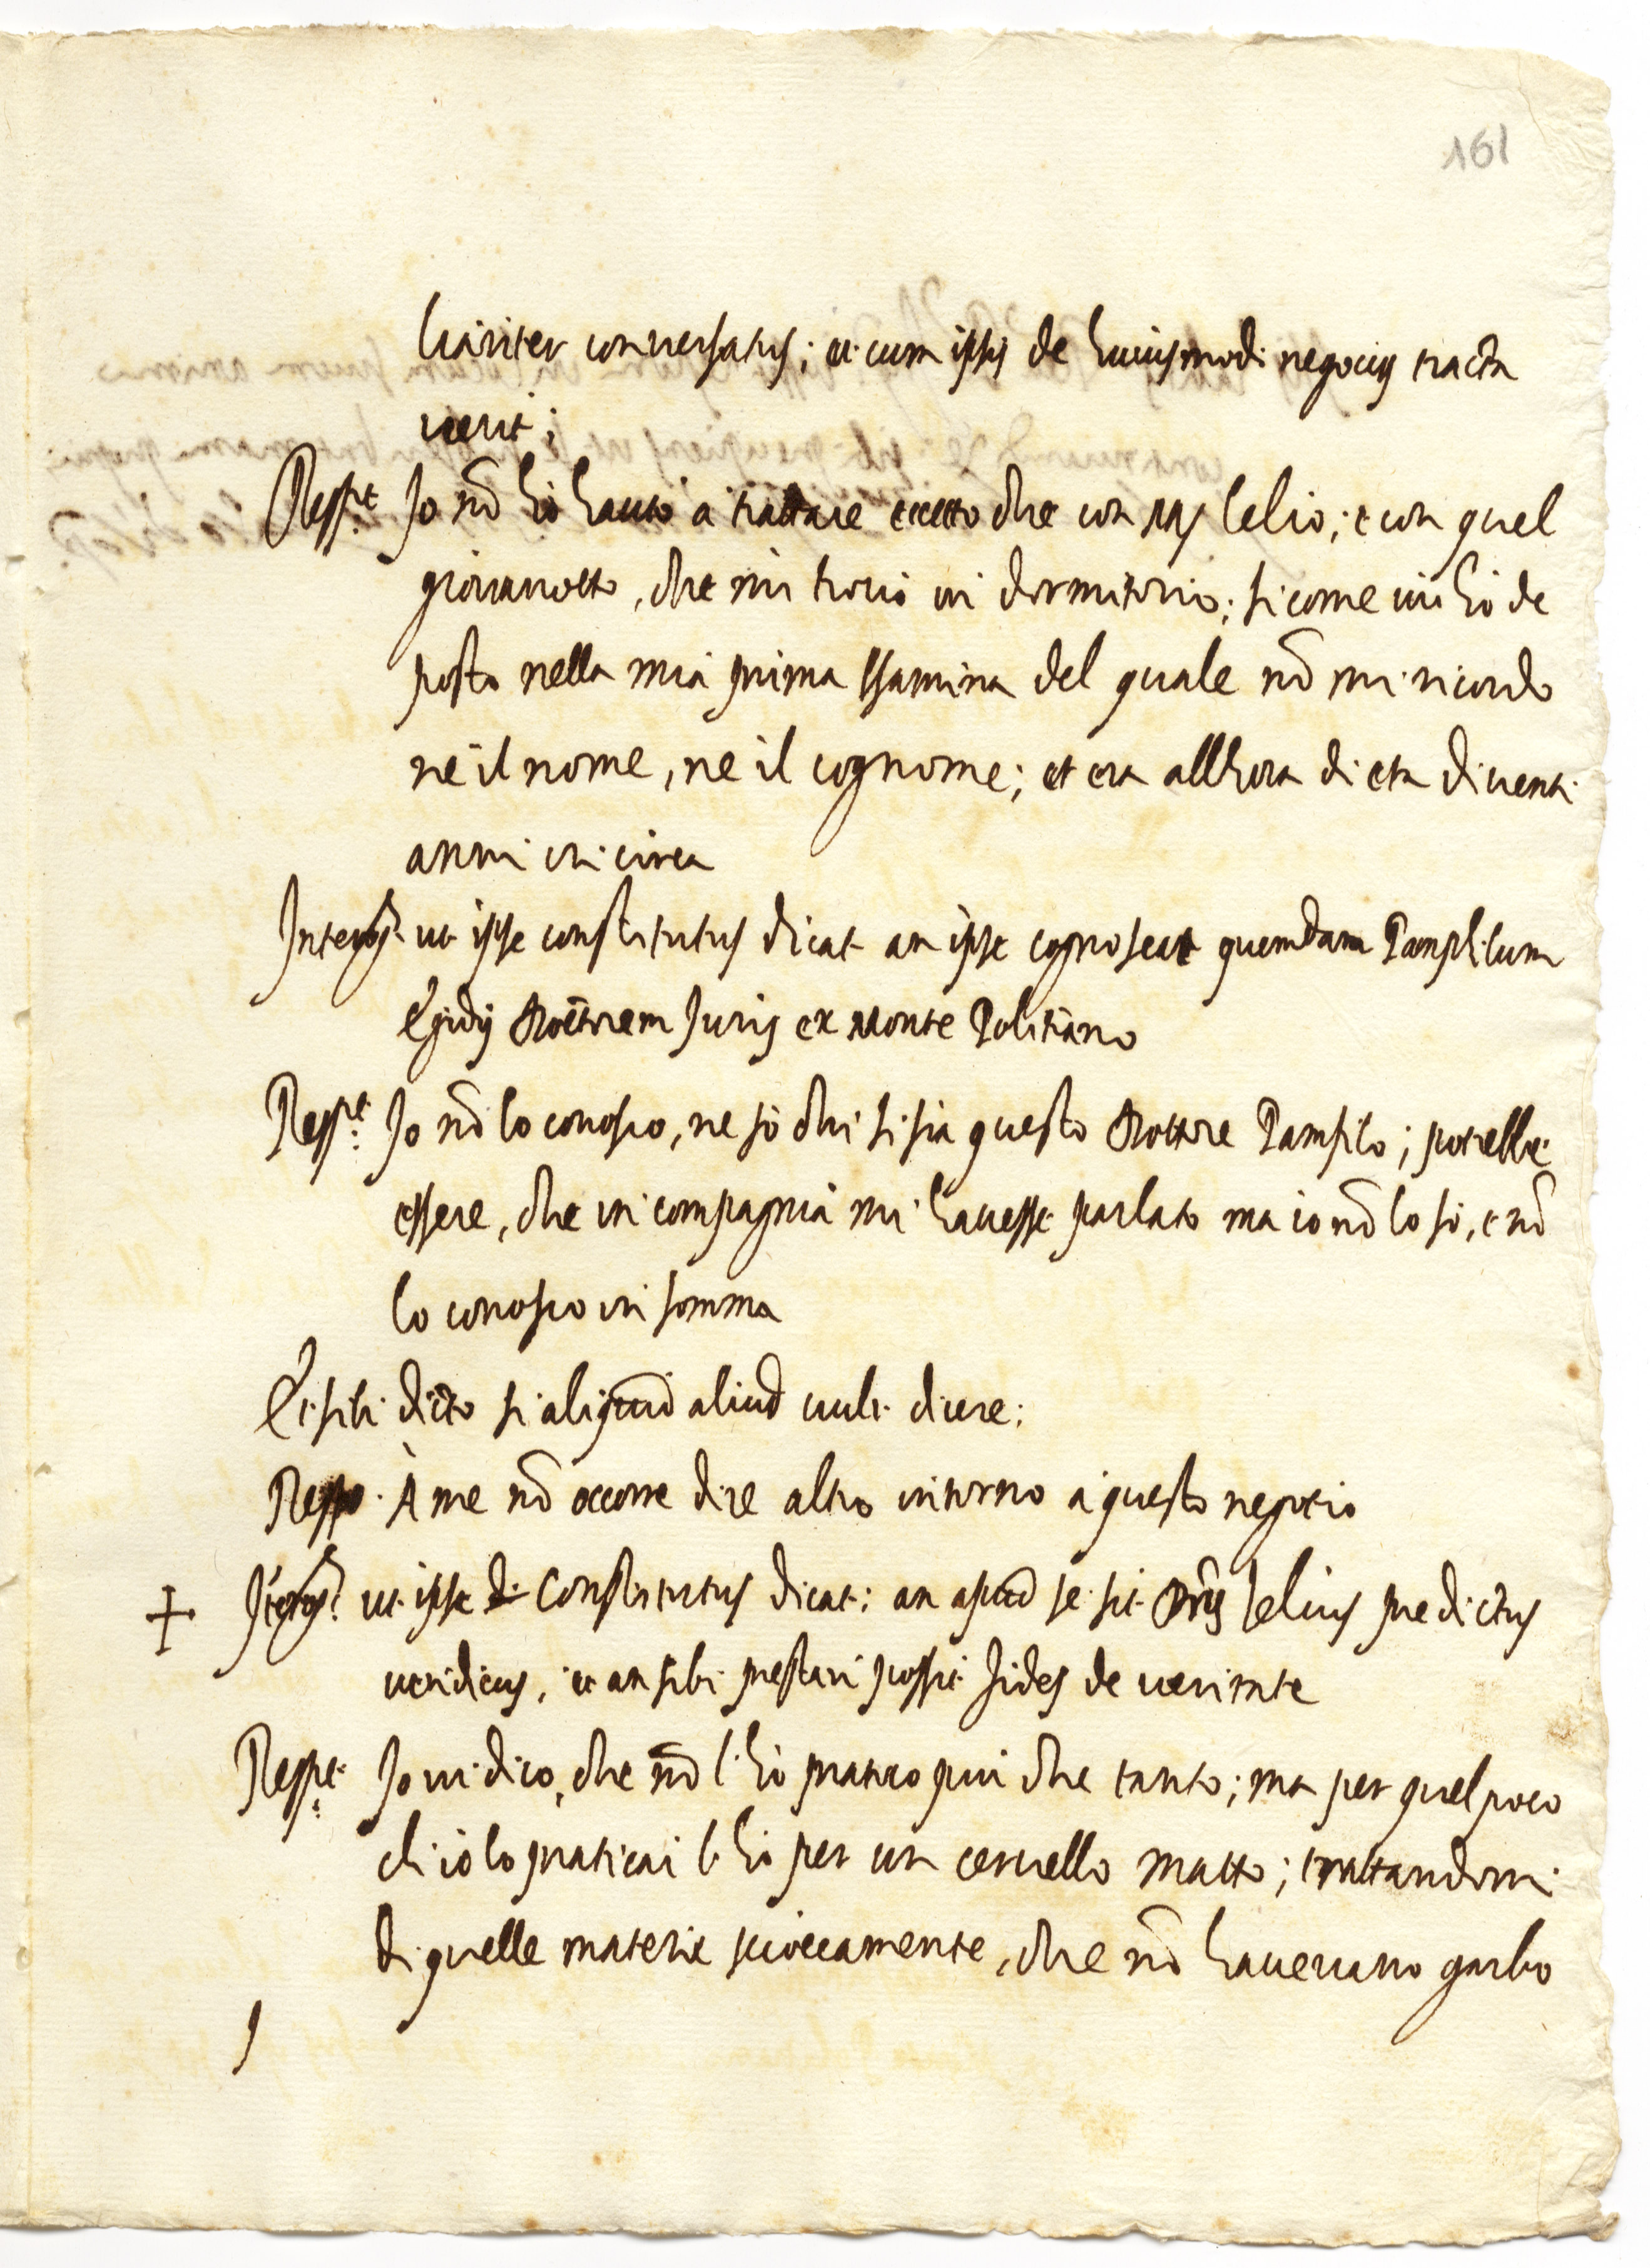 161
liariter conversatus; et cum ipsis de huiusmodi negociis tracta
verit;
Respt. Io nõ hò hauto à trattare eccetto che con Ms Lelio; e con quel
giovanotto, che mi trovò in dormitorio; si come vi hò de
posto nella mia prima essamina del quale nõ mi ricordo
ne il nome, ne il cognome; et era allhora di eta di venti
anni in circa
Interog. ut ipse constitutus dicat an ipse cognoscat quemdam Pamphilum
Egidij Doctorem Juris ex Monte Politiano
Respt. Io nõ lo conosco, ne sò chi si sia questo Dottore Pamfilo; potrebbe
essere, che in compagnia mi havesse parlato ma io nõ lo sò, e nõ
lo conosco in somma
Et sibi dicto si aliquid aliud vult dicere;
Respo. A me nõ occorre dire altro intorno à questo negotio
+ Iterog. ut ipse Constitutus dicat; an apud se sit Dñs Lelius predictus
veridicus, et an sibi prestari possit fides de veritate
Respt. Io vi dico, che nõ l'hò pratico piu che tanto; ma per quel poco
ch'io lo praticai l'hò per un cervello matto; trattandomi
di quelle materie scioccamente, che nõ havevano garbo